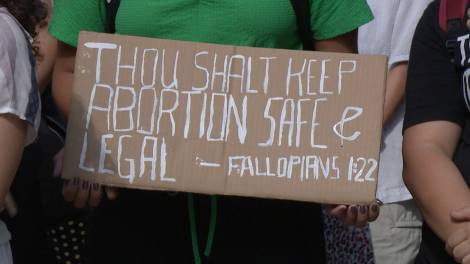 THOU SHALT KEEP
ABORTION SAFE &
LEGAL – FALLOPIANS 1:22